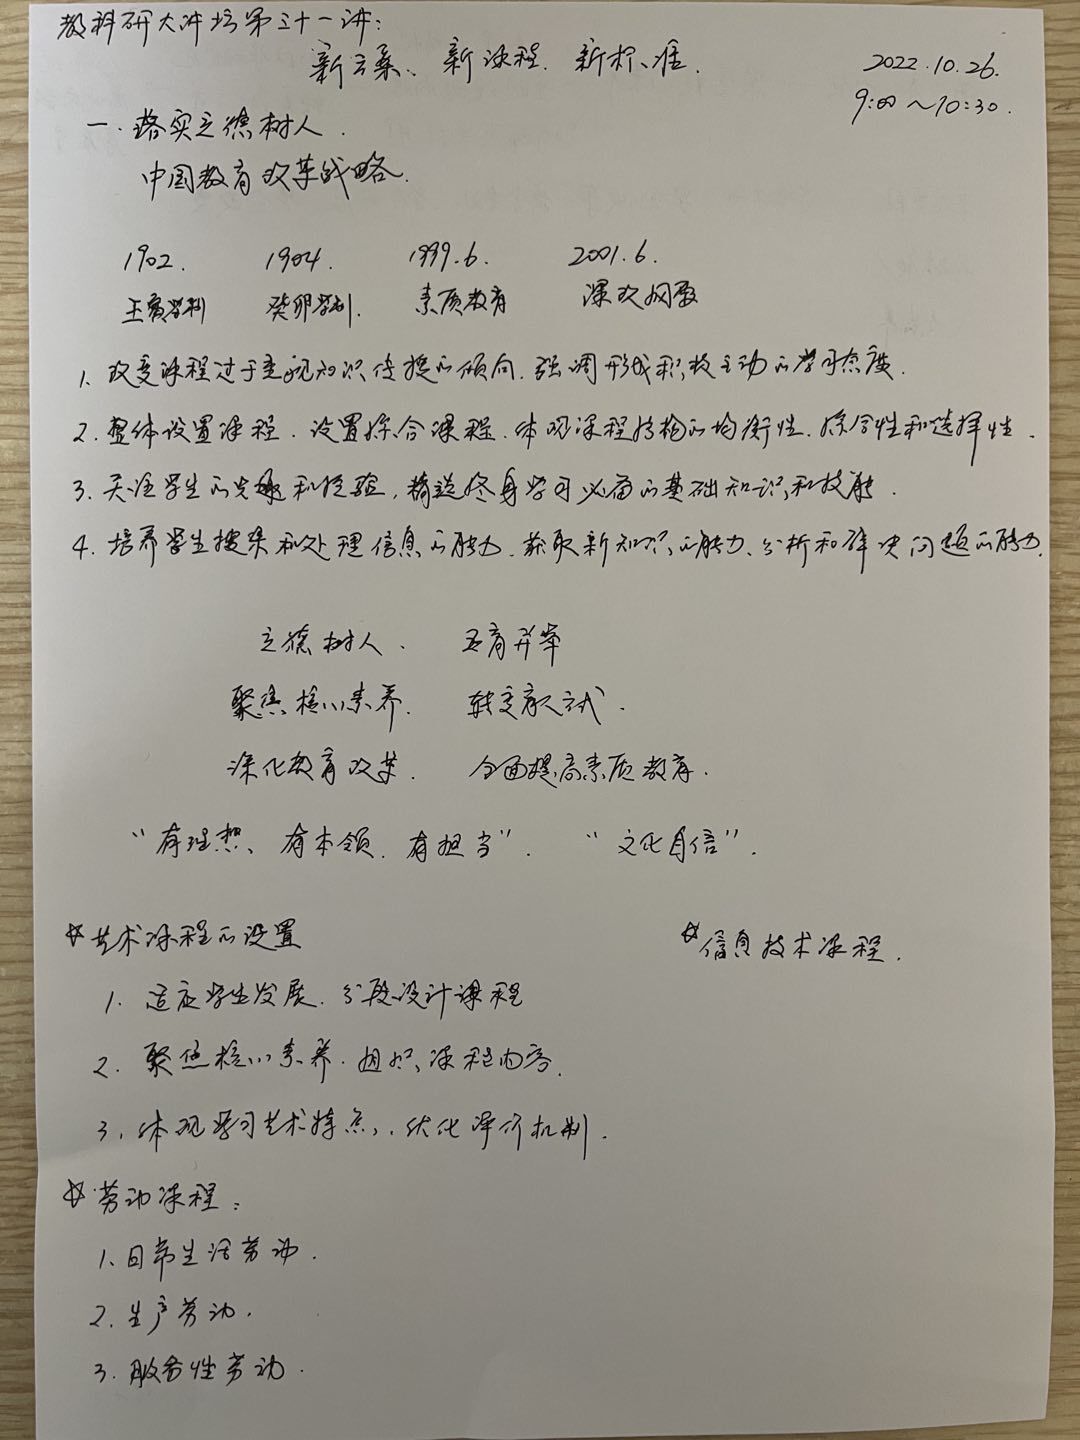 教科研大冲培第三十一讲:
新方案、新课程、新标准.
2022.10.26.
9:00~10:30.
一.落实立德树人.
中国教育改革战略.
1902. 1904. 1999.6. 2001.6.
壬寅学制 癸卯学制. 素质教育 课改纲要
1、改变课程过于重视知识传授的倾向.强调形成积极主动的学习态度.
2.整体设置课程.设置综合课程.体现课程结构的均衡性.综合性和选择性.
3.关注学生的兴趣和经验,精选终身学习必备的基础知识和技能.
4.培养学生搜集和处理信息的能力.获取新知识的能力、分析和解决问题的能力.
立德树人. 五育并举
聚焦核心素养. 转变育人方式.
深化教育改革. 全面提高素质教育.
“有理想、有本领.有担当”. “文化自信”.
☆艺术课程的设置 ☆信息技术课程.
1.适应学生发展.分段设计课程
2.聚焦核心素养.组织课程内容.
3、体现学习艺术特点,.优化评价机制.
☆劳动课程:
1、日常生活劳动.
2.生产劳动.
3.服务性劳动.